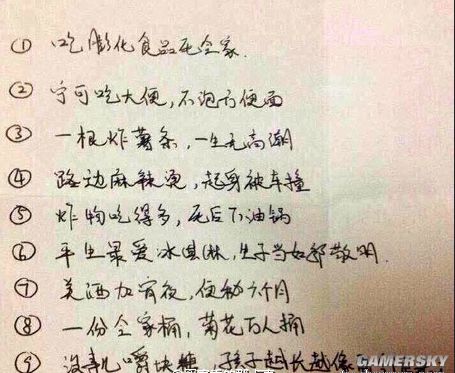 ① 吃膨化食品死全家.
② 宁可吃大便,不泡方便面
③ 一根炸薯条,一生无高潮
④ 路边麻辣烫,起身被车撞
⑤ 炸物吃得多,死后下油锅
⑥ 平生最爱冰淇淋,生子当如郭敬明.
⑦ 美酒加宵夜,便秘六个月
⑧ 一份全家桶,菊花万人捅
⑨ 没事儿嚼块糖,孩子越长越像
GAMERSKY